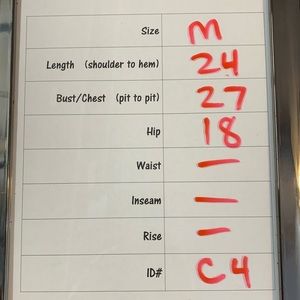 Size M
Length (shoulder to hem) 24
Bust/Chest (pit to pit) 27
Hip 18
Waist —
Inseam —
Rise —
ID# C4